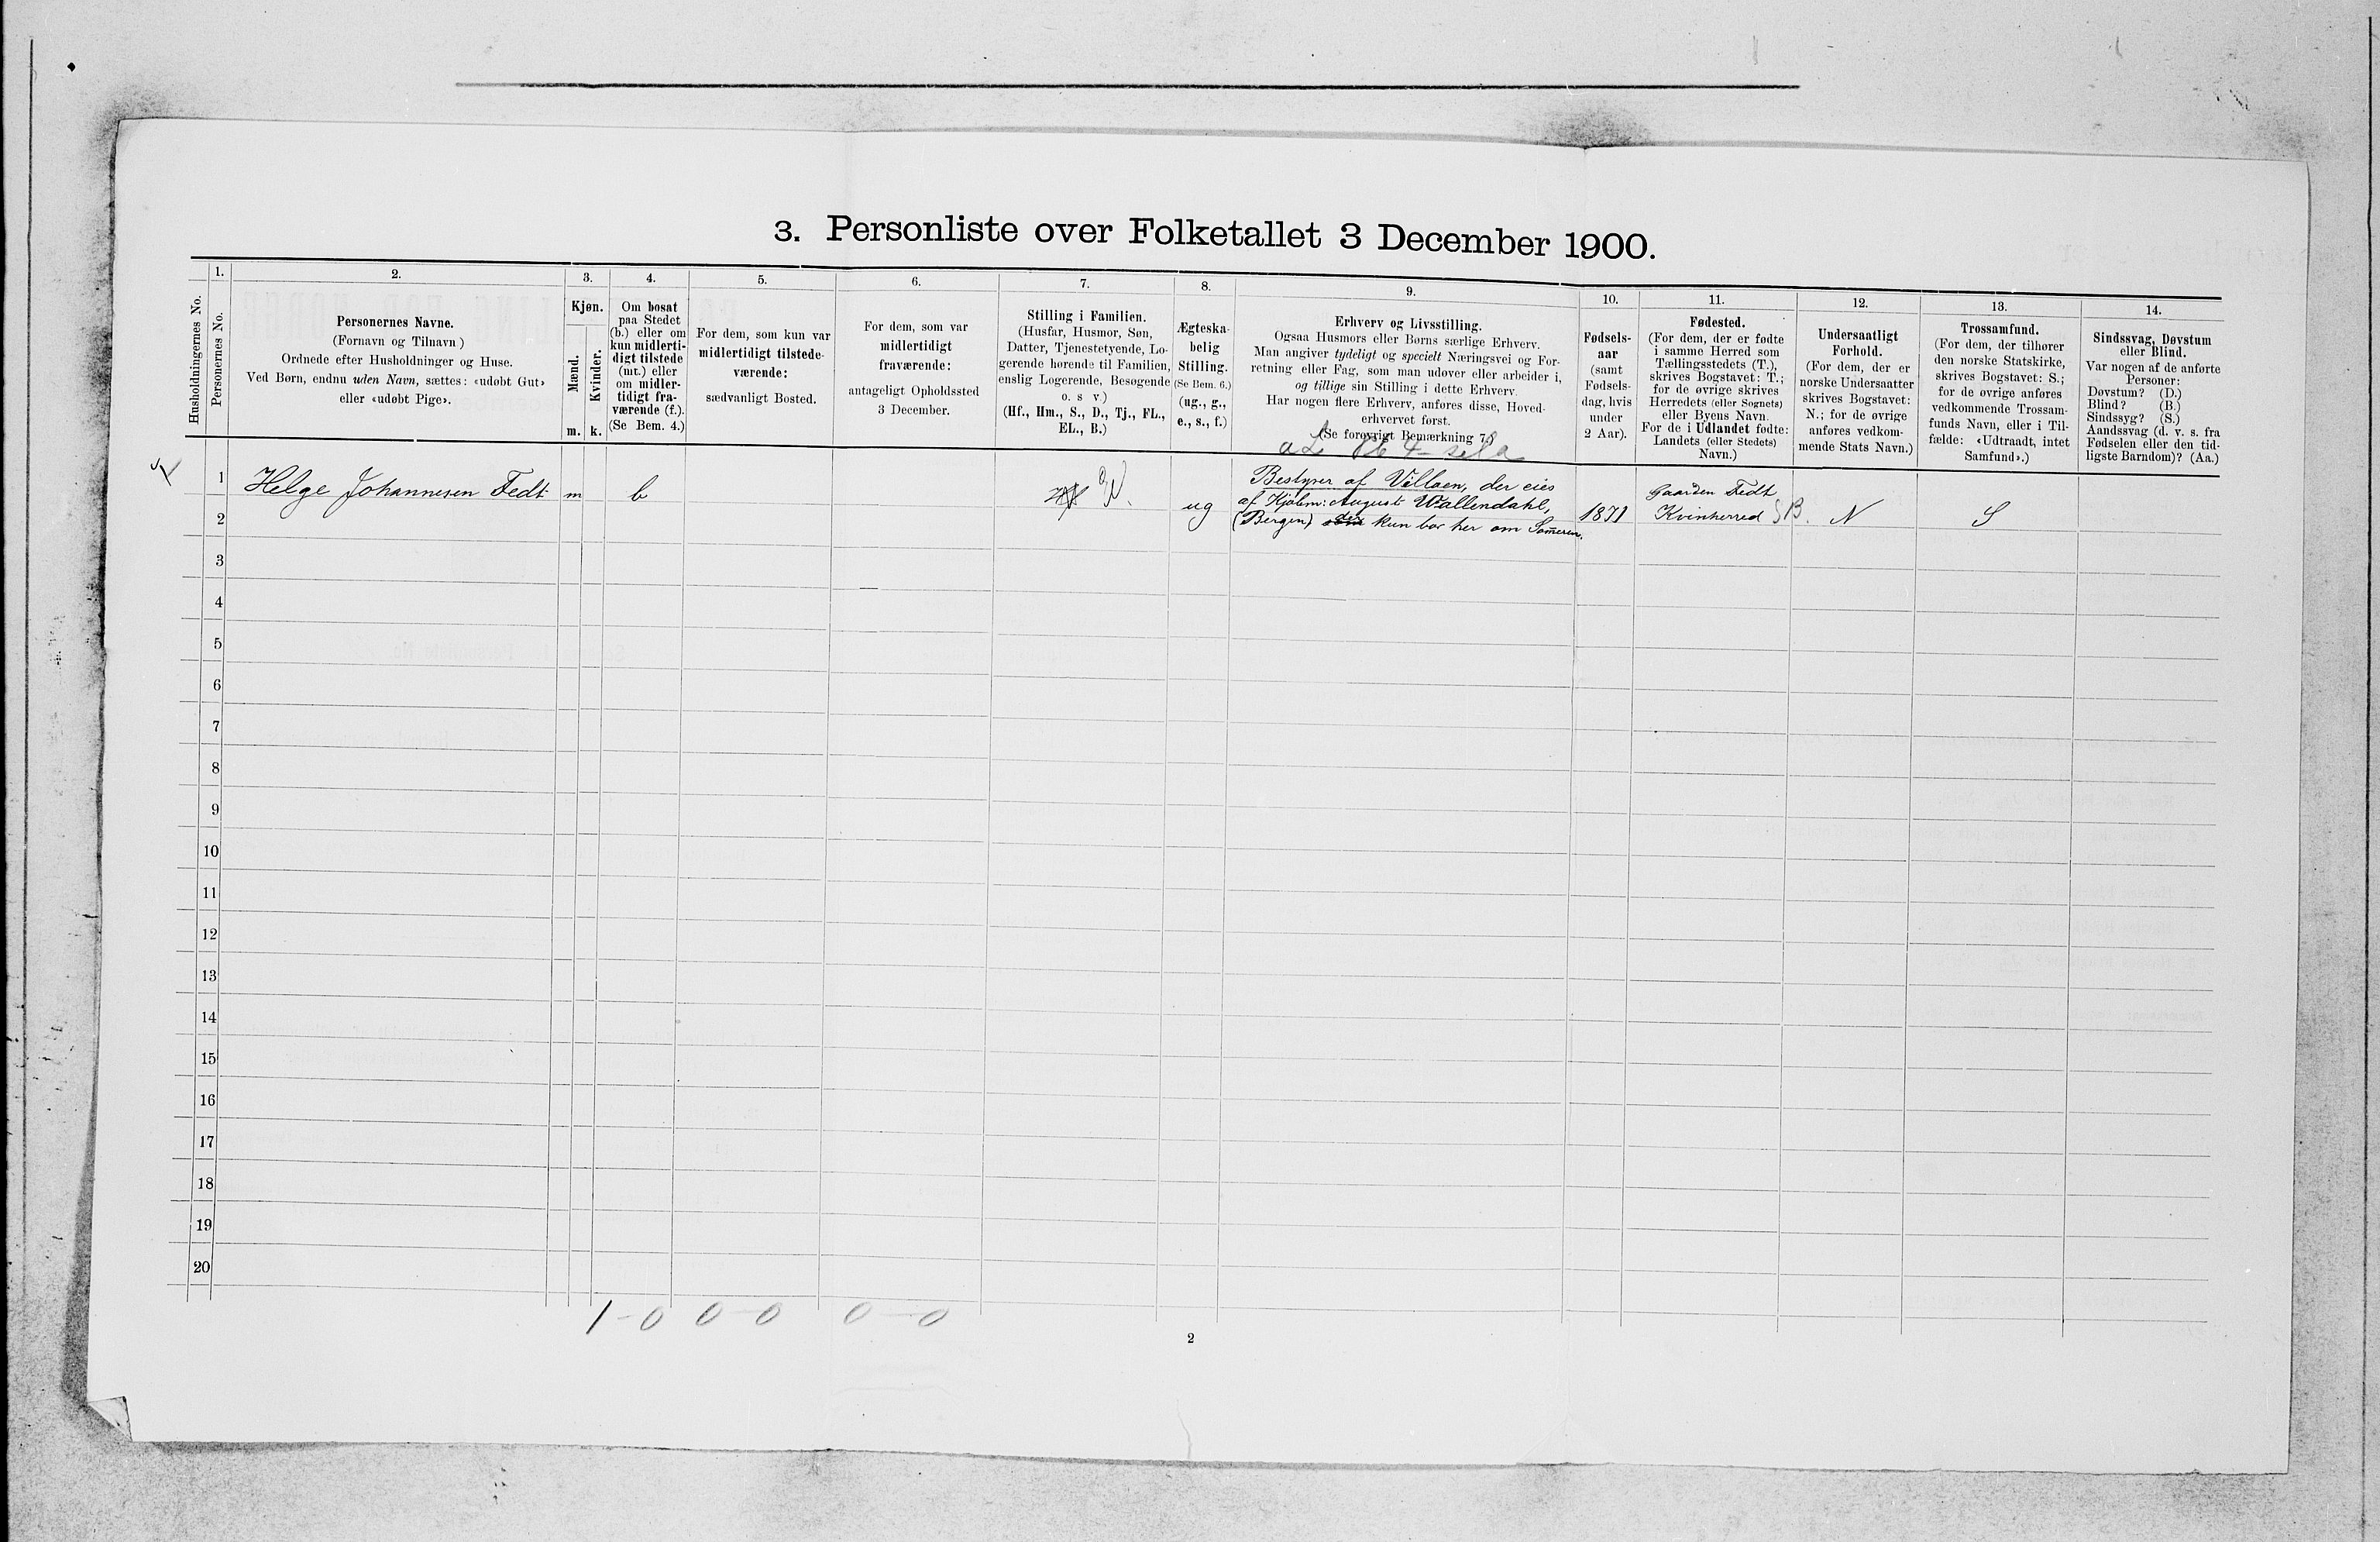 3. Personliste over Folketallet 3 December 1900.
Husholdningernes No.
1.
Personernes No.
2.
Personernes Navne.
(Fornavn og Tilnavn.)
Ordnede efter Husholdninger og Huse.
Ved Børn, endnu uden Navn, sættes: «udøbt Gut»
eller «udøbt Pige».
3.
Kjøn.
Mænd.
Kvinder.
m. k.
4.
Om bosat
paa Stedet
(b.) eller om
kun midlerti-
digt tilstede
(mt.) eller
om midler-
tidigt fra-
værende (f.).
(Se Bem. 4.)
5.
For dem, som kun var
midlertidigt tilstede-
værende:
sædvanligt Bosted.
6.
For dem, som var
midlertidigt
fraværende:
antageligt Opholdssted
3 December.
7.
Stilling i Familien.
(Husfar, Husmor, Søn,
Datter, Tjenestetyende, Lo-
gerende hørende til Familien,
enslig Logerende, Besøgende
o. s v.)
(Hf., Hm., S., D., Tj., FL.,
EL., B.)
8.
Ægteska-
belig
Stilling.
(Se Bem. 6.)
(ug., g.,
e., s., f.)
9.
Erhverv og Livsstilling.
Ogsaa Husmors eller Børns særlige Erhverv.
Man angiver tydeligt og specielt Næringsvei og For-
retning eller Fag, som man udøver eller arbeider i,
og tillige sin Stilling i dette Erhverv.
Har nogen flere Erhverv, anføres disse, Hoved-
erhvervet først.
(Se forøvrigt Bemærkning 7.)
10.
Fødsels-
aar
(samt
Fødsels-
dag, hvis
under
2 Aar).
11.
Fødested.
(For dem, der er fødte
i samme Herred som
Tællingsstedets (T.),
skrives Bogstavet: T.;
for de øvrige skrives
Herredets (eller Sognets)
eller Byens Navn.
For de i Udlandet fødte:
Landets (eller Stedets)
Navn.)
12.
Undersaatligt
Forhold.
(For dem, der er
norske Undersaatter
skrives Bogstavet:
N.; for de øvrige
anføres vedkom-
mende Stats Navn.)
13.
Trossamfund.
(For dem, der tilhører
den norske Statskirke,
skrives Bogstavet: S.;
for de øvrige anføres
vedkommende Trossam-
funds Navn, eller i Til-
fælde: «Udtraadt, intet
Samfund».)
14.
Sindssvag, Døvstum
eller Blind.
Var nogen af de anførte
Personer:
Døvstum? (D.)
Blind? (B.)
Sindssyg? (S.)
Aandssvag (d. v. s. fra
Fødselen eller den tid-
ligste Barndom)? (Aa.)
1 Helge Johannesen Fedt m b
ug
Bestyrer af Villaen, der eies
af Kjøbm: August Wallendahl,
(Bergen) der kun bor her om Sommeren.
1871
Gaarden Fedt
Kvinherred SB.
N
S
2
3
4
5
6
7
8
9
10
11
12
13
14
15
16
17
18
19
20
1-0 0-0 0-0
2